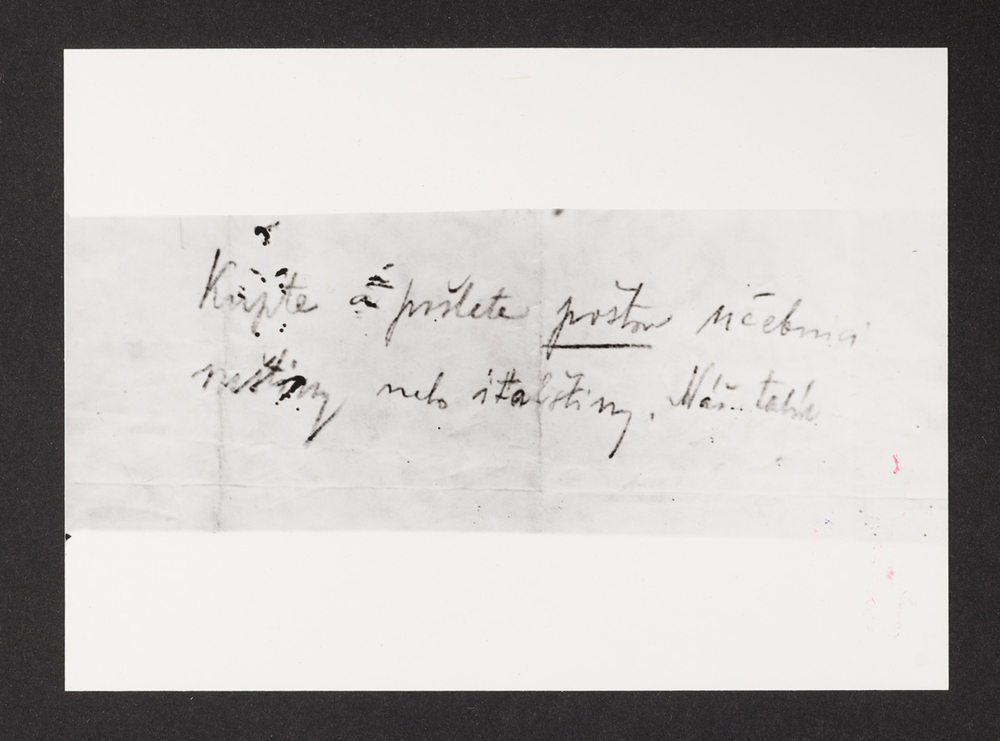 Kupte a pošlete poštou učebnici
ruštiny nebo italštiny. Náš tatík